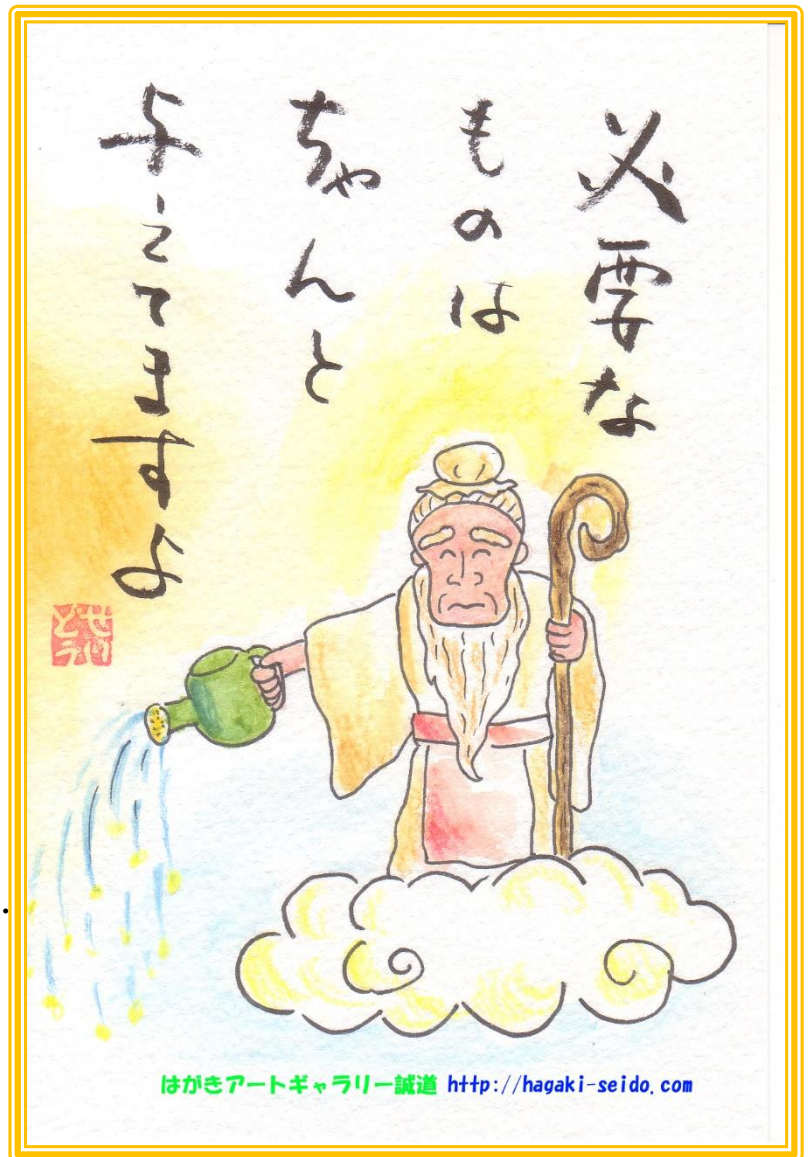 必要な
ものは
ちゃんと
与えてますよ
せいどう
はがきアートギャラリー誠道 http://hagaki-seido.com